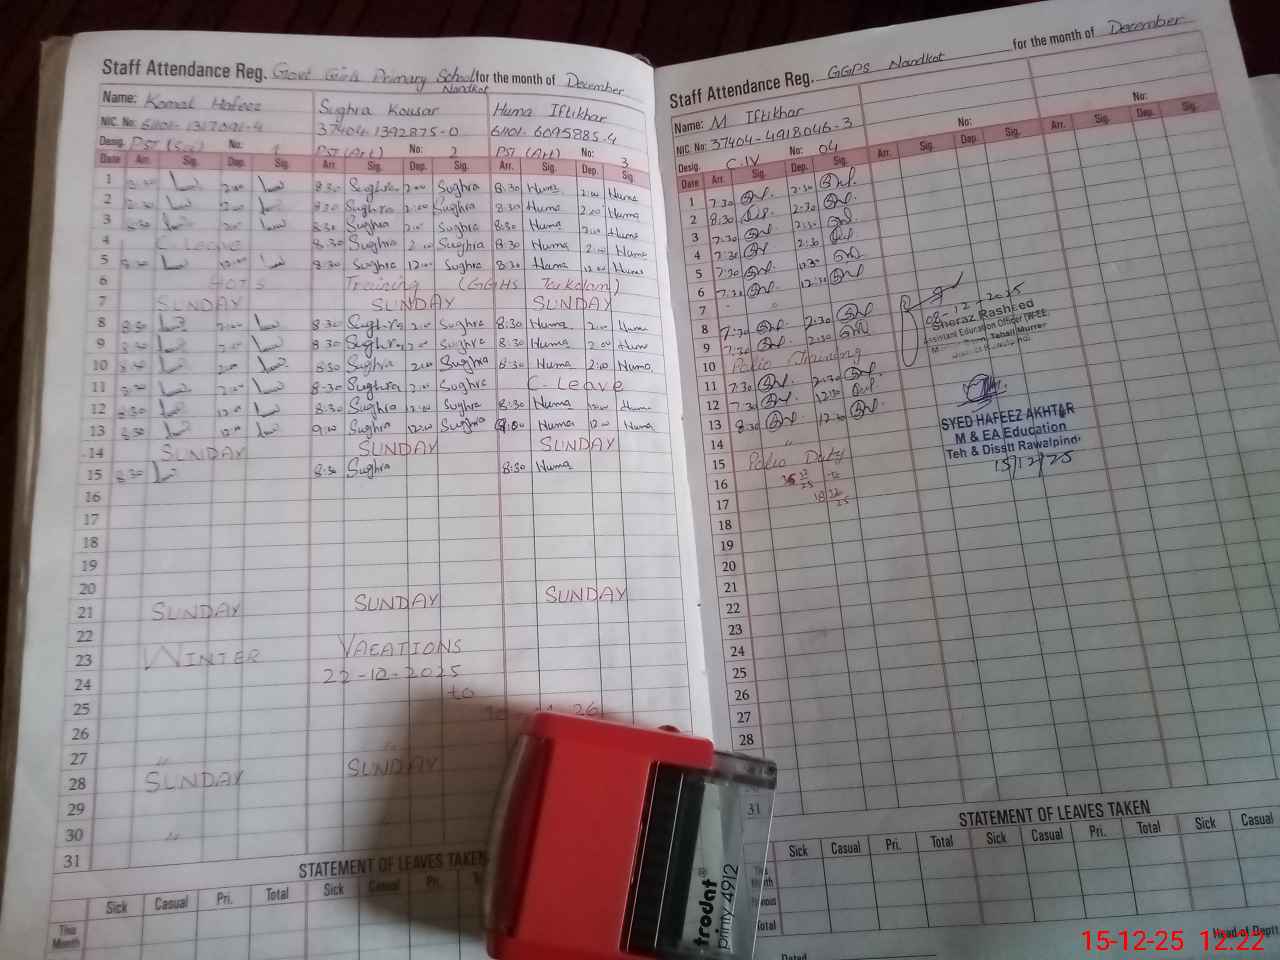 Staff Attendance Reg. Govt Girls Primary School Nandkot for the month of December
Name: Komal Hafeez Sughra Kousar Huma Iftikhar
NIC. No: 61101-1317091-4 37404-1392875-0 61101-6095885-4
Desig. PST (Sci) No: 1 PST (Art) No: 2 PST (Art) No: 3
Date Arr. Sig. Dep. Sig. Arr. Sig. Dep. Sig. Arr. Sig. Dep. Sig.
1 8:30 2:00 8:30 Sughra 2:00 Sughra 8:30 Huma 2:00 Huma
2 8:30 2:00 8:30 Sughra 2:00 Sughra 8:30 Huma 2:00 Huma
3 8:30 2:00 8:30 Sughra 2:00 Sughra 8:30 Huma 2:00 Huma
4 C. Leave 8:30 Sughra 2:00 Sughra 8:30 Huma 2:00 Huma
5 8:30 12:00 8:30 Sughra 12:00 Sughra 8:30 Huma 12:00 Huma
6 HOTS Training (GGHS Tarkalan)
7 SUNDAY SUNDAY SUNDAY
8 8:30 2:00 8:30 Sughra 2:00 Sughra 8:30 Huma 2:00 Huma
9 8:30 2:00 8:30 Sughra 2:00 Sughra 8:30 Huma 2:00 Huma
10 8:30 2:00 8:30 Sughra 2:00 Sughra 8:30 Huma 2:00 Huma
11 8:30 2:00 8:30 Sughra 2:00 Sughra C. Leave
12 8:30 12:00 8:30 Sughra 12:00 Sughra 8:30 Huma 12:00 Huma
13 8:30 12:00 9:00 Sughra 12:00 Sughra 9:00 Huma 12:00 Huma
14 SUNDAY SUNDAY SUNDAY
15 8:30 8:30 Sughra 8:30 Huma
16
17
18
19
20
21 SUNDAY SUNDAY SUNDAY
22
23 WINTER VACATIONS
24 22-12-2025
25 to
26
27
28 SUNDAY SUNDAY
29
30
31
STATEMENT OF LEAVES TAKEN
Sick Casual Pri. Total Sick Casual Pri.
This Month
Staff Attendance Reg. GGPS Nandkot for the month of December
Name: M Iftikhar
NIC. No: 37404-4918046-3 No: No:
Desig. C.IV No: 04
Date Arr. Sig. Dep. Sig. Arr. Sig. Dep. Sig. Arr. Sig. Dep. Sig.
1 7:30 2:30
2 8:30 2:30
3 7:30 2:30
4 7:30 2:30
5 7:30 12:30
6 7:30 12:30
7
8 7:30 2:30
9 7:30 2:30
10 Polio Training
11 7:30 2:30
12 7:30 12:30
13 8:30 12:30
14
15 Polio Duty
16
17
18
19
20
21
22
23
24
25
26
27
28
31
08-12-2025
Sheraz Rasheed
Assistant Education Officer
SYED HAFEEZ AKHTAR
M & EA Education
Teh & Disstt Rawalpindi
15/12/25
STATEMENT OF LEAVES TAKEN
Sick Casual Pri. Total Sick Casual Pri. Total Sick Casual
This Month
Total
Head of Deptt
Dated
trodat®
printy 4912
15-12-25 12:22